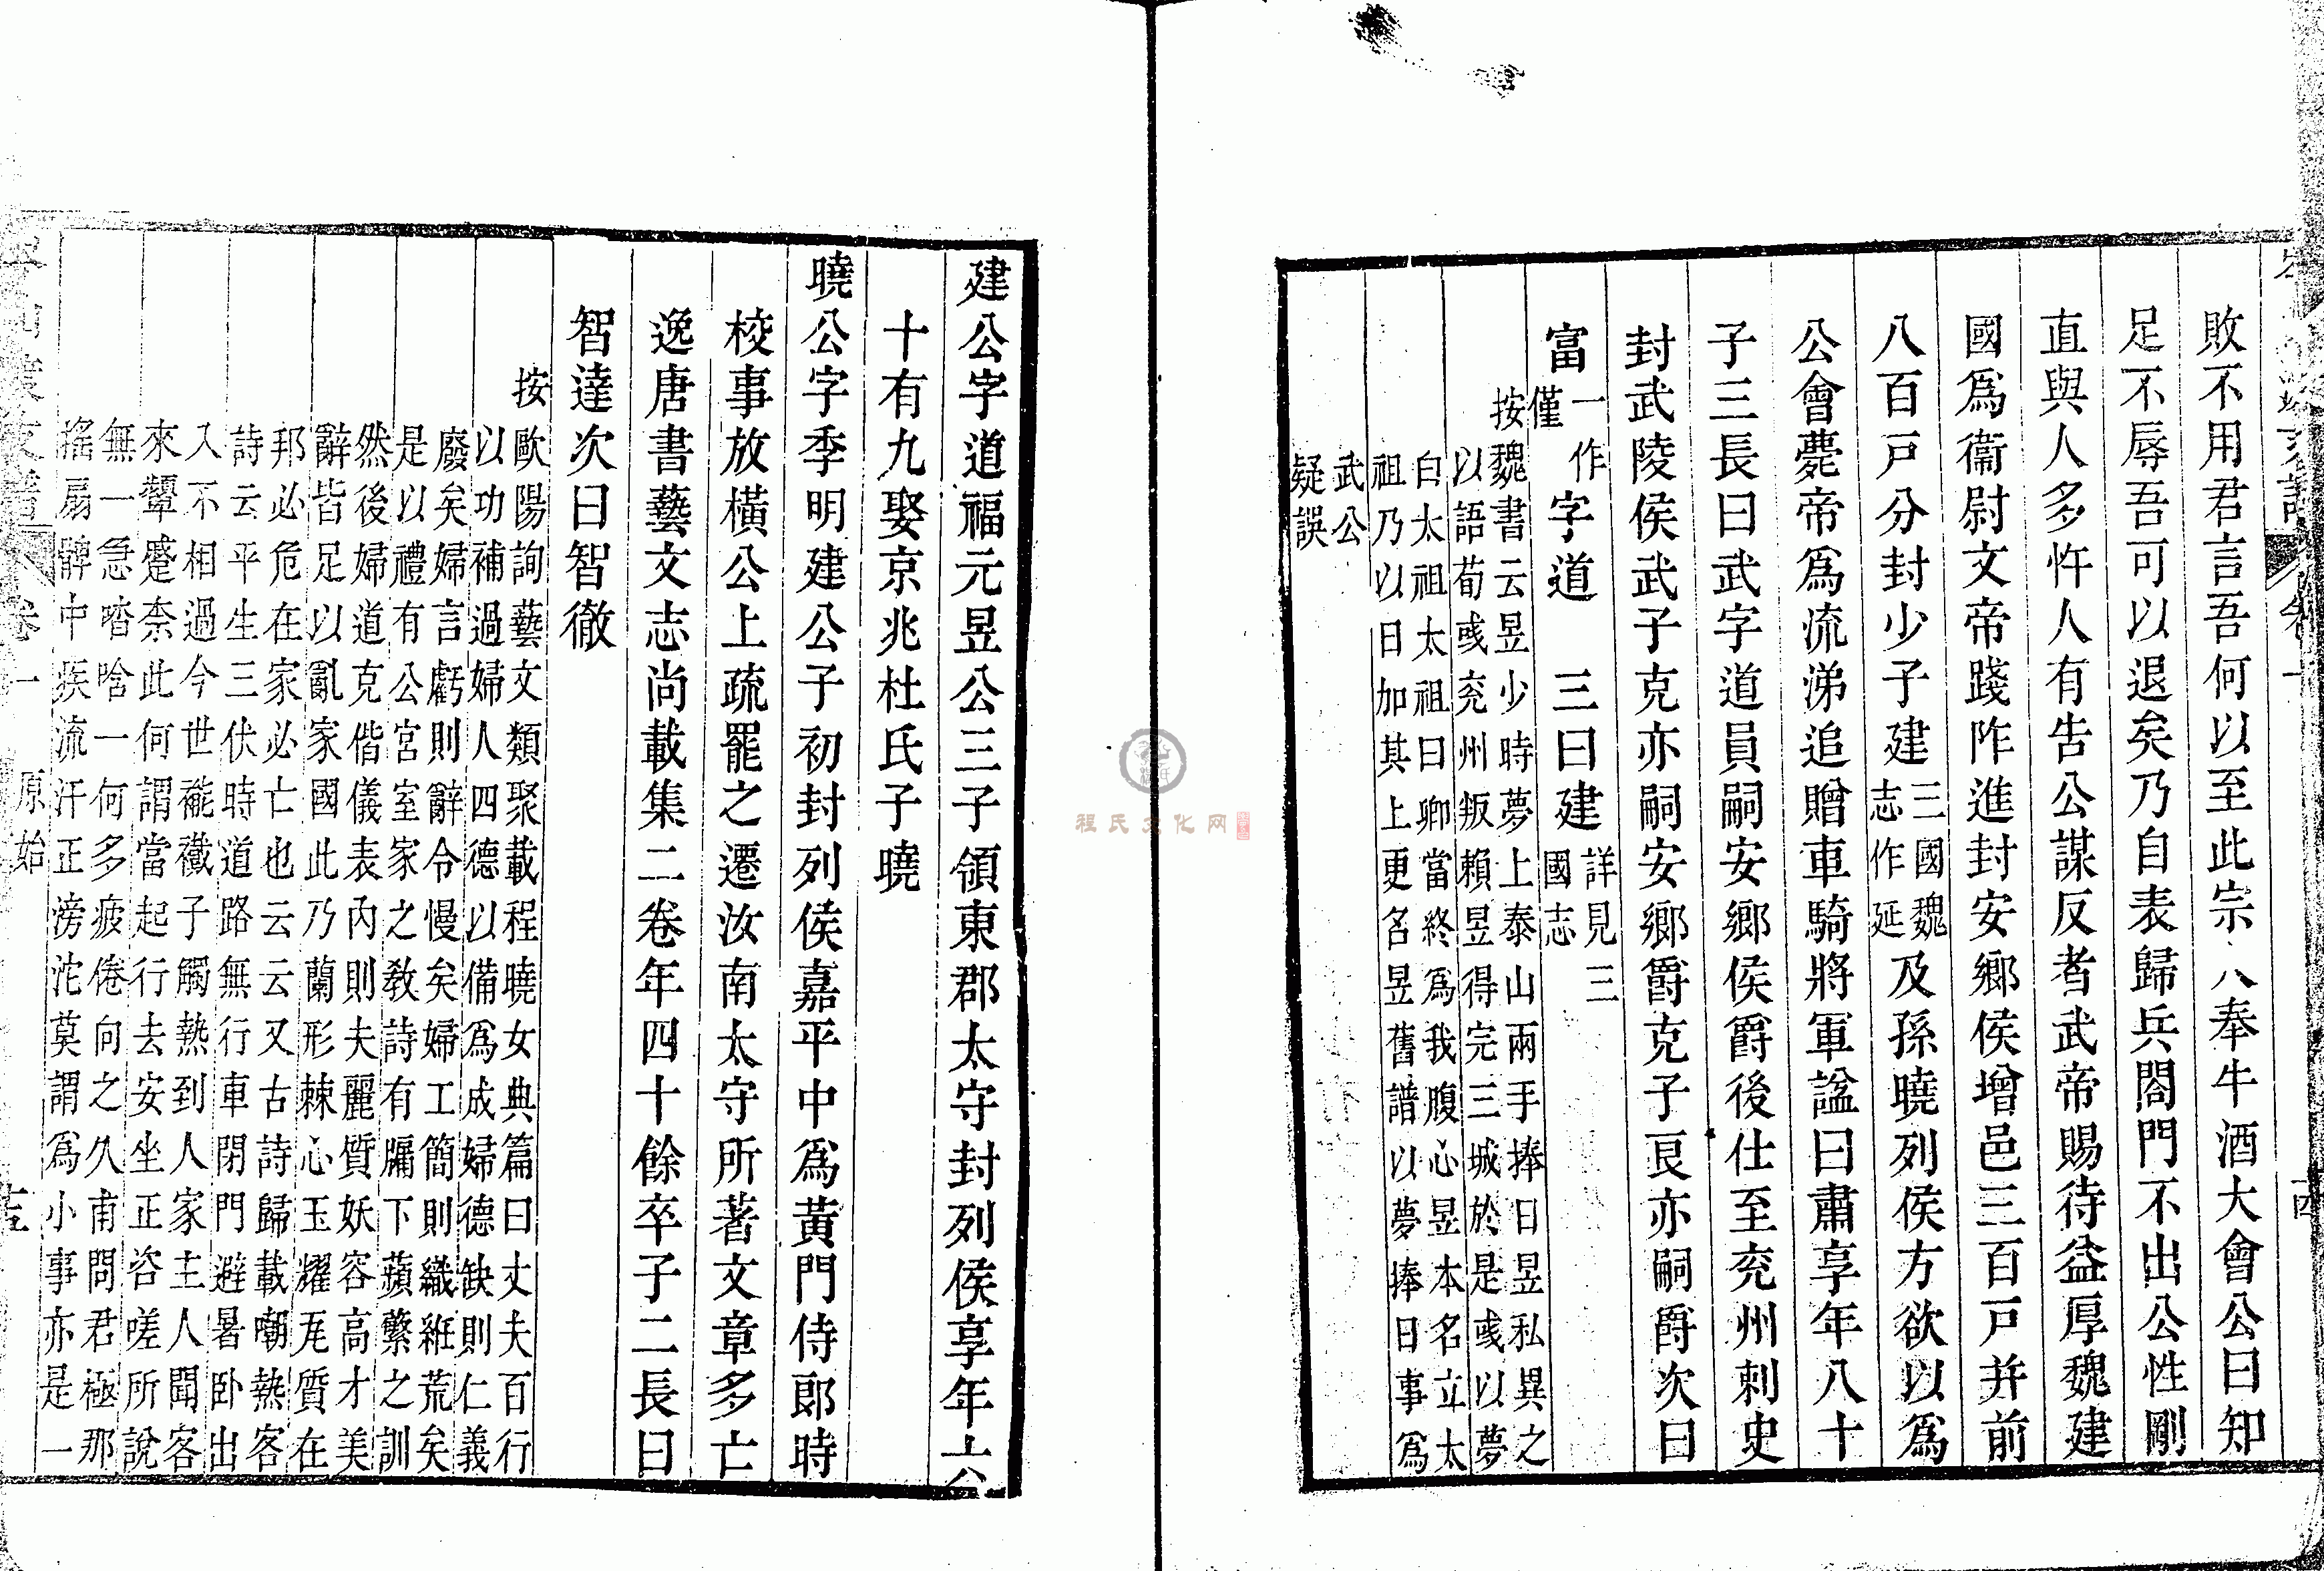 敗不用君言吾何以至此宗人奉牛酒大會公曰知
足不辱吾可以退矣乃自表歸兵閤門不出公性剛
直與人多忤人有告公謀反者武帝賜待益厚魏建
國爲衞尉文帝踐阼進封安鄉侯增邑三百戸并前
八百戸分封少子建三國魏志作延及孫曉列侯方欲以爲
公會薨帝爲流涕追贈車騎將軍諡曰肅享年八十
子三長曰武字道員嗣安鄉侯爵後仕至兖州刺史
封武陵侯武子克亦嗣安鄉爵克子良亦嗣爵次曰
富一作僅字道 三曰建詳見三國志
按魏書云昱少時夢上泰山兩手捧日昱私異之
以語荀彧兖州叛賴昱得完三城於是彧以夢
白太祖太祖曰卿當終爲我腹心昱本名立太
祖乃以日加其上更名昱舊譜以夢捧日事爲
武公
疑誤
建公字道福元昱公三子領東郡太守封列侯享年六
十有九娶京兆杜氏子曉
曉公字季明建公子初封列侯嘉平中爲黃門侍郎時
校事放橫公上疏罷之遷汝南太守所著文章多亡
逸唐書藝文志尚載集二卷年四十餘卒子二長曰
智達次曰智徹
按歐陽詢藝文類聚載程曉女典篇曰丈夫百行
以功補過婦人四德以備爲成婦德缺則仁義
廢矣婦言虧則辭令慢矣婦工簡則織絍荒矣
是以禮有公宮室家之教詩有牖下蘋蘩之訓
然後婦道克偕儀表內則夫麗質妖容高才美
辭皆足以亂家國此乃蘭形棘心玉耀瓦質在
邦必危在家必亡也云云又古詩歸載嘲熱客
詩云平生三伏時道路無行車閉門避暑卧出
入不相過今世褦襶子觸熱到人家主人聞客
來顰蹙柰此何謂當起行去安坐正咨嗟所說
無一急喈唅一何多疲倦向之久甫問君極那
搖扇髀中疾流汗正滂沱莫謂爲小事亦是一
卷一 原始
程氏文化网